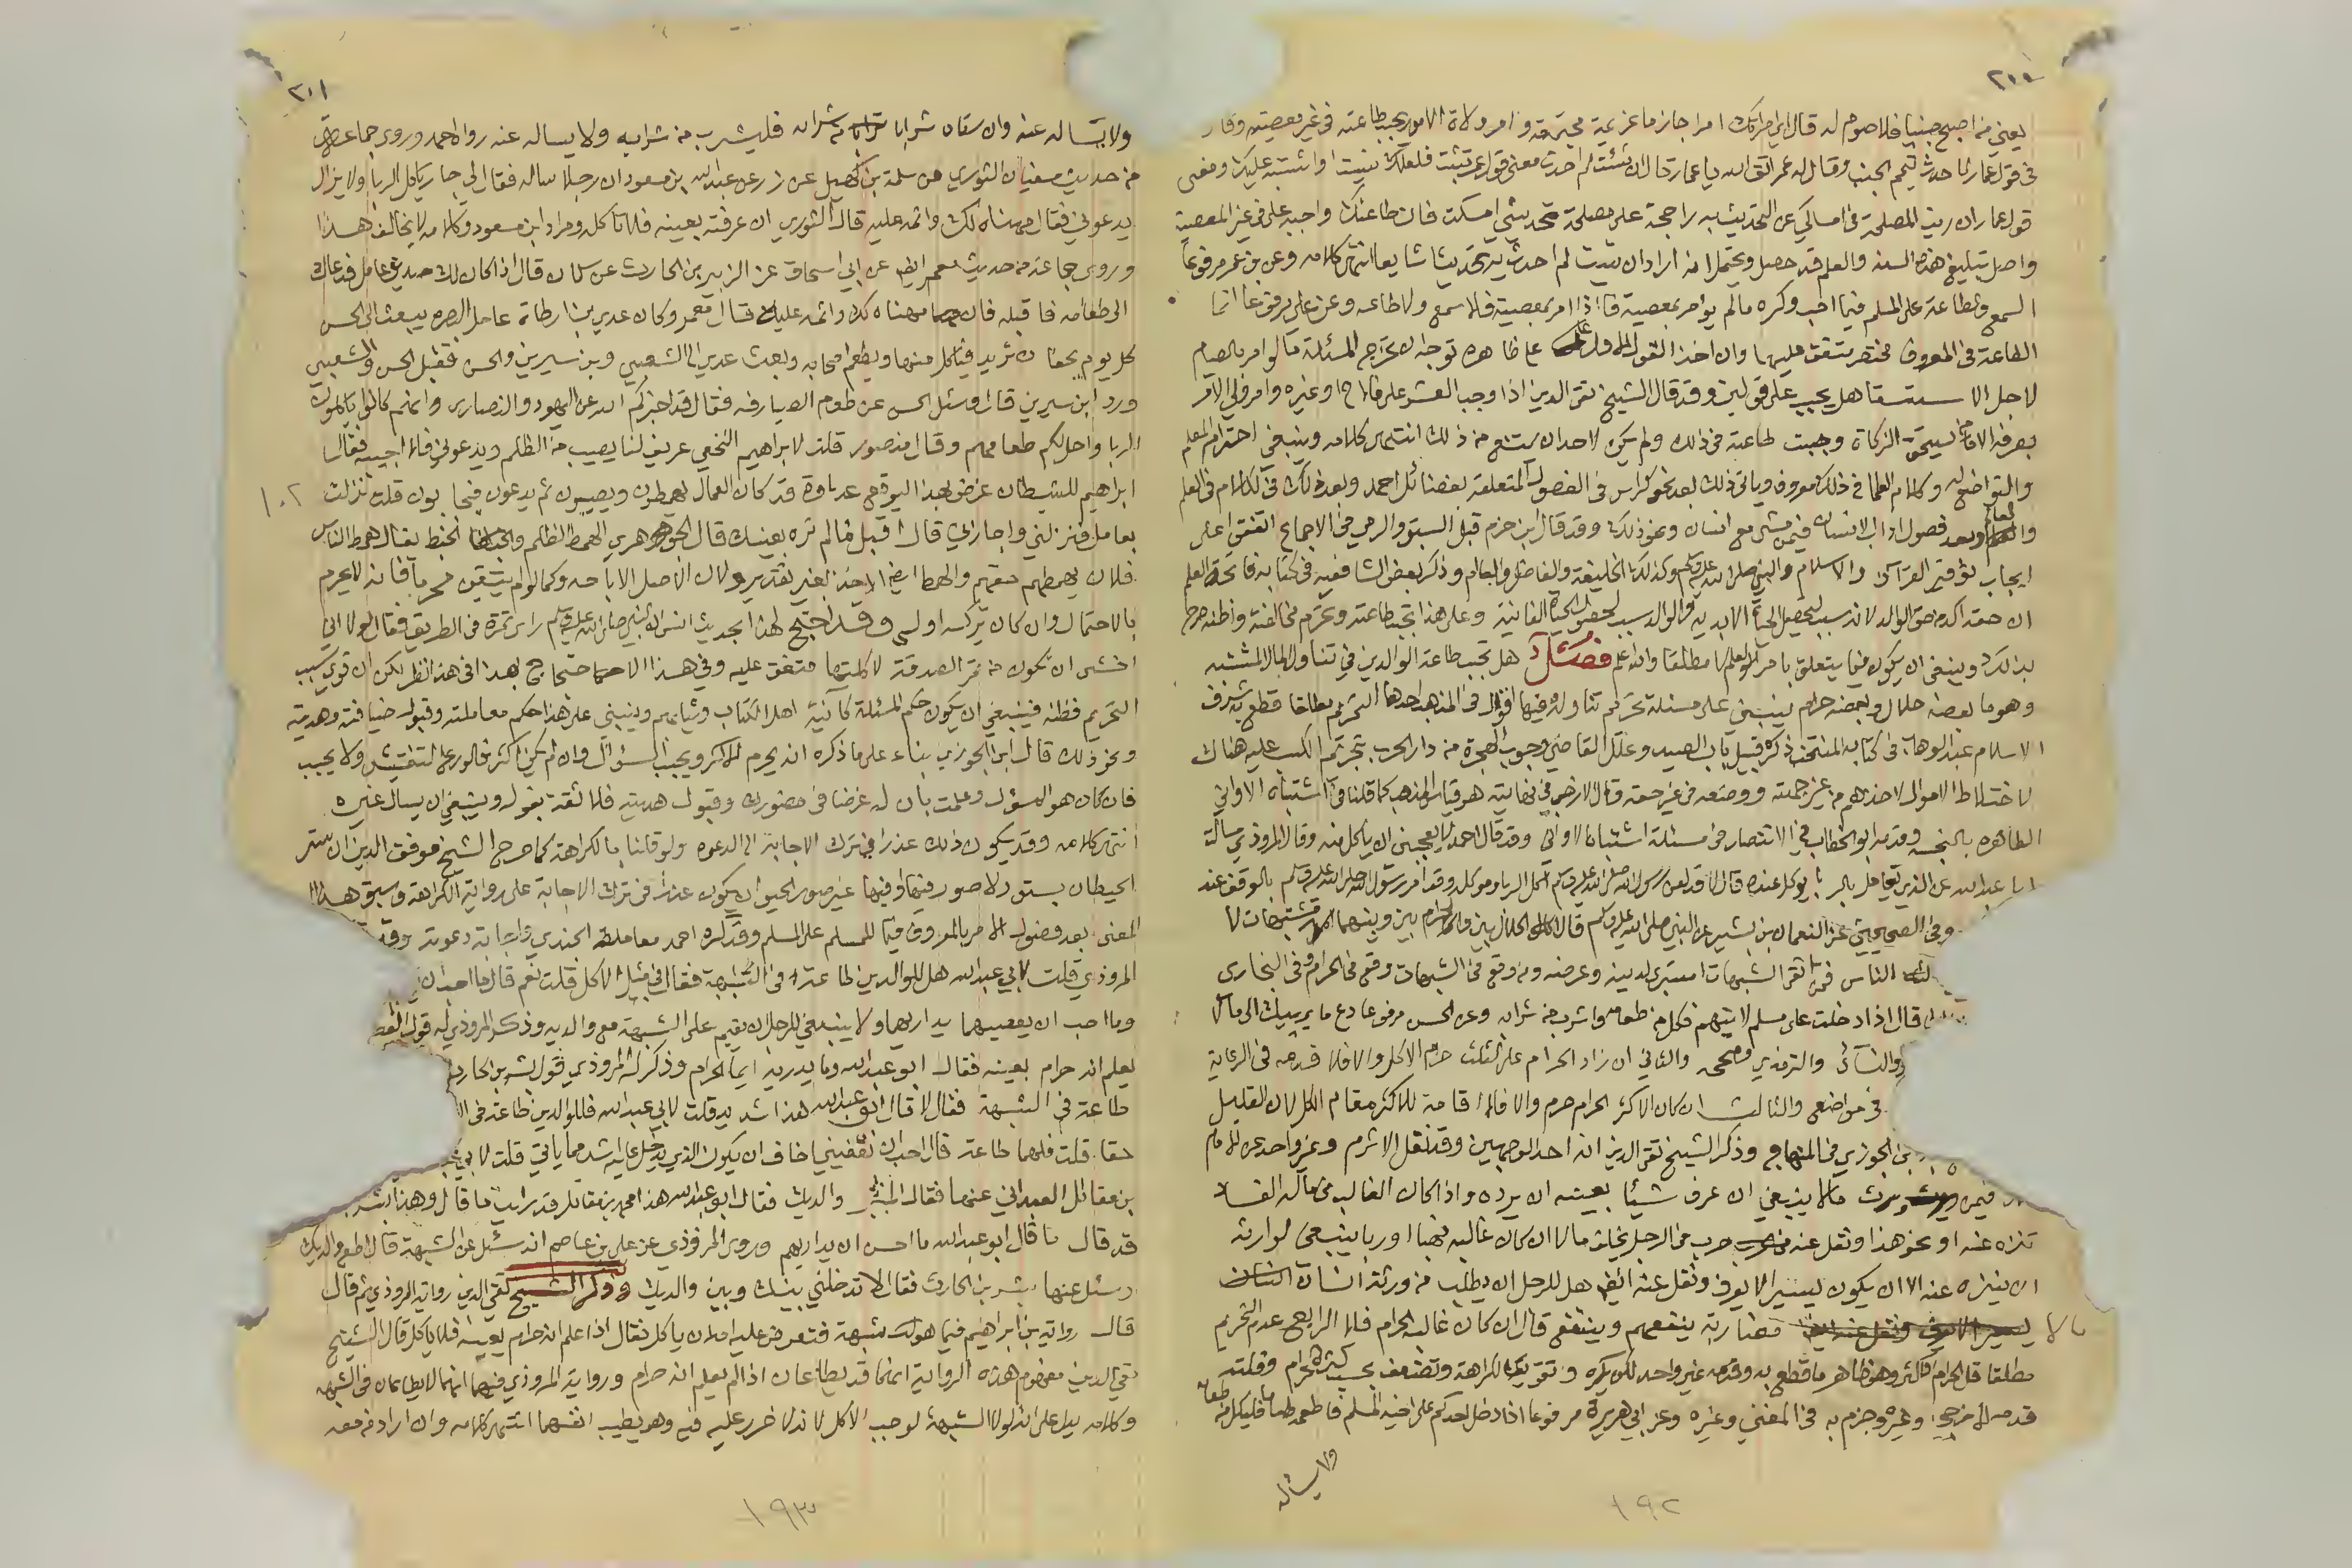 ٢٠٠
يعني من اصبح جنبا فلا صوم له قال اي امرتك امرا جازما عزيمة محتمة وامر ولاة الامور تجب طاعته في غير معصية وقال
في قول عمار لما حدث تيمم الجنب وقال له عمر اتق الله يا عمار قال ان شئت لم احدث معنى قول عمر تثبت فلعلك نسيت او اشتبه عليك ومعنى
قول عمار ان رايت المصلحة في امساكي عن التحديث به راجحة على مصلحة تحديثي امسكت فان طاعتك واجبة علي في غير المعصية
واصل تبليغ هذه السنة والعلم قد حصل ويحتمل انه اراد ان شئت لم احدث به تحديثا شايعا انتهى كلامه وعن بن عمر مرفوعا
السمع والطاعة على المسلم فيما احب وكره مالم يؤامر بمعصية فاذا امر بمعصية فلا سمع ولا طاعة وعن علي مرفوعا انما
الطاعة في المعروف مختصر متفق عليهما وان اخذ القول على ظاهره توجه ان تخرج المسئلة ما لو امر بالصيام
لاجل الاستسقا هل يجب على قولين وقد قال الشيخ تقي الدين اذا وجب العشر على فلاح او غيره وامر ولي الامر
بصرفه الى من يستحق الزكاة وجبت طاعته في ذلك ولم يكن لاحد ان يمتنع من ذلك انتهى كلامه وينبغي احترام المعلم
والتواضع له وكلام العلما في ذلك معروف وياتي ذلك بعد نحو كراس في الفصول المتعلقة بفضائل احمد وبعد ذلك في الكلام في العلم
والعالم وبعد فصول اداب الانسان فيمن مشى مع انسان ونحو ذلك وقد قال ابن حزم قبل السبق والرمي في الاجماع اتفقوا على
ايجاب توقير القرآن والاسلام والنبي صلى الله عليه وسلم وكذلك الخليفة والفاضل والعالم وذكر بعض الشافعية في كتابه فاتحة العلم
ان حقه اكد من حق الوالد لانه سبب لتحصيل الحياة الابدية والوالد سبب لحصول الحياة الفانية وعلى هذا تجب طاعته وتحرم مخالفته واظنه صرح
بذلك وينبغي ان يكون فيما يتعلق بامر العلم لا مطلقا والله اعلم فصل هل تجب طاعة الوالدين في تناول المال المشتبه
وهو ما بعضه حلال وبعضه حرام ينبني على مسئلة تحريم تناوله وفيها اقوال في المذهب احدها التحريم مطلقا قطع به شرف
الاسلام عبد الوهاب في كتابه المنتخب ذكره قبيل باب الصيد وعلل القاضي وجوب الهجرة من دار الحرب بتحريم الكسب عليه هناك
لاختلاط الاموال لاخذهم من غير جهته ووضعه في غير حقه وقال الازجي في نهايته هو قياس المذهب كما قلنا في اشتباه الاواني
الطاهرة بالنجسة وقدمه ابو الخطاب في الانتصار في مسئلة اشتباه الاواني وقد قال احمد لا يعجبني ان ياكل منه وقال المروذي سالت
ابا عبد الله عن الذي يعامل بالربا يؤكل عنده قال لا قد لعن رسول الله صلى الله عليه وسلم آكل الربا وموكله وقد امر رسول الله صلى الله عليه وسلم بالوقوف عند
وفي الصحيحين عن النعمان بن بشير عن النبي صلى الله عليه وسلم قال الحلال بين والحرام بين وبينهما امور مشتبهات لا
الناس فمن اتقى الشبهات استبرى لدينه وعرضه ومن وقع في الشبهات وقع في الحرام وفي البخاري
قال اذا دخلت على مسلم لا يتهم فكل من طعامه واشرب من شرابه وعن الحسن مرفوعا دع ما يريبك الى مالا
والنسائي والترمذي وصححه والثاني ان زاد الحرام على الثلث حرم الاكل والا فلا قدمه في الرعاية
في مواضع والثالث ان كان الاكثر الحرام حرم والا فلا اقامة للاكثر مقام الكل لان القليل
بن الجوزي في المنهاج وذكر الشيخ تقي الدين انه احد الوجهين وقد نقل الاثرم وغير واحد عن الامام
فيمن ورث مالا ينبغي ان عرف شيئا بعينه ان يرده واذا كان الغالب في ماله الفساد
تنزه عنه او نحو هذا ونقل عنه حرب في الرجل يخلف مالا ان كان غالبه نهبا او ربا ينبغي لوارثه
ان يتنزه عنه الا ان يكون يسيرا لا يعرف ونقل عنه ايضا هل للرجل ان يطلب من ورثة انسان
مالا مضاربة ينفعهم وينتفع قال ان كان غالبه الحرام فلا والرابع عدم التحريم
مطلقا قل الحرام او كثر وهو ظاهر ما قطع به وقدمه غير واحد لكن يكره وتقوى الكراهة وتضعف بحسب كثرة الحرام وقلته
قدمه الازجي وغيره وجزم به في المغني وغيره وعن ابي هريرة مرفوعا اذا دخل احدكم على اخيه المسلم فاطعمه طعاما فلياكل من طعامه
ولا يساله
١٩٢
٢٠١
ولا يساله عنه وان سقاه شرابا من شرابه فليشرب من شرابه ولا يساله عنه رواه احمد وروى جماعة
من حديث سفيان الثوري عن سلمة بن كهيل عن زر عن عبد الله بن مسعود ان رجلا ساله فقال لي جار ياكل الربا ولا يزال
يدعوني فقال مهناه لك واثمه عليه قال الثوري ان عرفته بعينه فلا تاكله ومراد ابن مسعود وكلامه لا يخالف هذا
وروى جماعة من حديث معمر ايضا عن ابي اسحاق عن الزبير بن الحارث عن سلمان قال اذا كان لك صديق عامل فدعاك
الى طعامه فاقبله فان مهناه لك واثمه عليه قال معمر وكان عدي بن ارطاة عامل البصرة يبعث الى الحسن
كل يوم بجفان ثريد فياكل منها ويطعم اصحابه وبعث عدي الى الشعبي وبن سيرين والحسن فقبل الحسن والشعبي
ورد ابن سيرين قال وسئل الحسن عن طعام الصيارفة فقال قد اخبركم الله عن اليهود والنصارى وانهم كانوا ياكلون
الربا واحل لكم طعامهم وقال منصور قلت لابراهيم النخعي عريف لنا يصيب من الظلم ويدعوني فلا اجيبه فقال
ابراهيم للشيطان غرض بهذا ليوقع عداوة قد كان العمال يهمطون ويصيبون ثم يدعون فيجابون قلت نزلت
١٠٢
بعامل فنزلني واجازني قال اقبل مالم تره بعينك قال الجوهري الهمط الظلم والخبط يقال همط الناس
فلان يهمطهم حقهم والهمط ايضا الاخذ بغير تقدير ولان الاصل الاباحة وكما لو لم يتيقن محرما فانه لا يحرم
بالاحتمال وان كان تركه اولى وقد احتج لهذا بحديث انس ان النبي صلى الله عليه وسلم راى تمرة في الطريق فقال لولا اني
اخشى ان تكون من تمر الصدقة لاكلتها متفق عليه وفي هذا الاحتجاج بهذا في هذا نظر لكن ان قوي سبب
التحريم فظنه فينبغي ان يكون حكم المسئلة كآنية اهل الكتاب وثيابهم وينبني على هذا حكم معاملته وقبول ضيافته وهديته
ونحو ذلك قال ابن الجوزي بناء على ما ذكره انه يحرم الاكثر ويجب السؤال وان لم يكن اكثر فالورع التفتيش ولا يجب
فان كان هو المسؤل وعلمت بان له غرضا في حضورك وقبول هديته فلا ثقة بقوله وينبغي ان يسال غيره
انتهى كلامه وقد يكون ذلك عذرا في ترك الاجابة الى الدعوة ولو قلنا بالكراهة كما صرح الشيخ موفق الدين ان ستر
الحيطان بستور لا صور فيها او فيها غير صور الحيوان يكون عذرا في ترك الاجابة على رواية الكراهة وسبق هذا
المعنى بعد فصول الامر بالمعروف فيما للمسلم على المسلم وقد كره احمد معاملة الجندي واجابة دعوته
المروذي قلت لابي عبد الله هل للوالدين طاعة في الشبهة فقال في مثل الاكل قلت نعم قال ما احب ان
وما احب ان يعصيهما يداريهما ولا ينبغي للرجل ان يقيم على الشبهة مع والديه وذكر المروذي له قول
يعلم انه حرام بعينه فقال ابو عبد الله وما يدريه ايما الحرام وذكر له المروذي قول بشر بن الحارث
طاعة في الشبهة فقال لا قال ابو عبد الله هذا شديد قلت لابي عبد الله فللوالدين طاعة في
حقا قلت فلهما طاعة قال احب ان تعفيني اخاف ان يكون الذي يدخل عليه اشد مما ياتي قلت لابي
بن مقاتل العباداني عنها فقال لي بر والديك فقال ابو عبد الله هذا محمد بن مقاتل قد رايت ما قال وهذا بشر
قد قال ما قال ابو عبد الله ما احسن ان يداريهم وروى المروذي عن علي بن عاصم انه سئل عن الشبهة قال اطع والديك
وسئل عنها بشر بن الحارث فقال لا تدخلني بينك وبين والديك وذكر الشيخ تقي الدين رواية المروذي ثم قال
قال رواية بن ابراهيم فيما هو شبهة فتعرض عليه امه ان ياكل فقال اذا علم انه حرام بعينه فلا ياكل قال الشيخ
تقي الدين مفهوم هذه الرواية انهما قد يطاعان اذا لم يعلم انه حرام ورواية المروذي فيها انهما لا يطاعان في الشبهة
وكلامه يدل على انه لولا الشبهة لوجب الاكل لانه لا ضرر عليه فيه وهو يطيب انفسهما انتهى كلامه وان اراد من معه
١٩٣